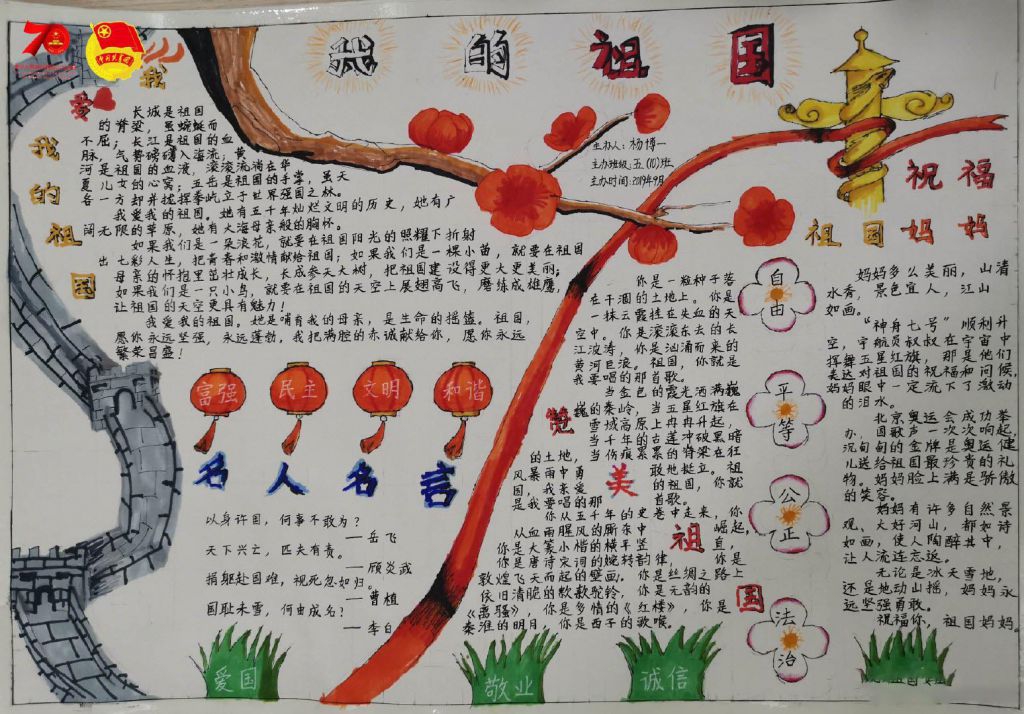 我的祖国
主办人：杨博一
主办班级：五.(10)班
主办时间：2019年9月
我
爱
我
的
祖
国
长城是祖国
的脊梁，虽蜿蜒而
不屈；长江是祖国的血
脉，气势磅礴入海流；黄
河是祖国的血液，滚滚流淌在华
夏儿女的心窝；五岳是祖国的手掌，虽天
各一方却并拢挥拳屹立于世界强国之林。
我爱我的祖国。她有五千年灿烂文明的历史，她有广
阔无限的草原，她有大海母亲般的胸怀。
如果我们是一朵浪花，就要在祖国阳光的照耀下折射
出七彩人生，把青春和激情献给祖国；如果我们是一棵小苗，就要在祖国
母亲的怀抱里茁壮成长，长成参天大树，把祖国建设得更大更美丽；
如果我们是一只小鸟，就要在祖国的天空上展翅高飞，磨练成雄鹰，
让祖国的天空更具有魅力！
我爱我的祖国。她是哺育我的母亲，是生命的摇篮。祖国，
愿你永远坚强，永远蓬勃，我把满腔的赤诚献给你，愿你永远
繁荣昌盛！
富强
民主
文明
和谐
名人名言
以身许国，何事不敢为？
—岳飞
天下兴亡，匹夫有责。
—顾炎武
捐躯赴国难，视死忽如归。
—曹植
国耻未雪，何由成名？
—李白
赞
美
祖
国
你是一粒种子落
在干涸的土地上。你是
一抹云霞挂在失血的天
空中。你是滚滚东去的长
江波涛，你是汹涌而来的
黄河巨浪。祖国，你就是
我要唱的那首歌。
当金色的霞光洒满巍
巍的秦岭，当五星红旗在
雪域高原上冉冉升起，
当千年的古莲冲破黑暗
的土地，当伤痕累累的脊梁在狂
风暴雨中勇敢地挺立。祖
国，我亲爱的祖国，你就
是我要唱的那首歌。
你从五千年的史卷中走来，你
从血雨腥风的厮杀中崛起，
你是大篆小楷的横平竖直，
你是唐诗宋词的婉转韵律，你是
敦煌飞天而起的壁画，你是丝绸之路上
依旧清脆的驼铃，你是元韵的
《离骚》，你是多情的《红楼》，你是
秦淮的明月，你是西子的歌喉。
自由
平等
公正
法治
祝福
祖国妈妈
妈妈多么美丽，山清
水秀，景色宜人，江山
如画。
“神舟七号”顺利升
空，宇航员叔叔在宇宙中
挥舞五星红旗，那是他们
表达对祖国的祝福和问候，
妈妈眼中一定流下了激动
的泪水。
北京奥运会成功举
办，国歌声一次次响起，
沉甸甸的金牌是奥运健
儿送给祖国最珍贵的礼
物。妈妈脸上满是骄傲
的笑容。
妈妈有许多自然景
观、大好河山，都如诗
如画，使人陶醉其中，
让人流连忘返。
无论是冰天雪地，
还是地动山摇，妈妈永
远坚强勇敢。
祝福你，祖国妈妈
爱国
敬业
诚信